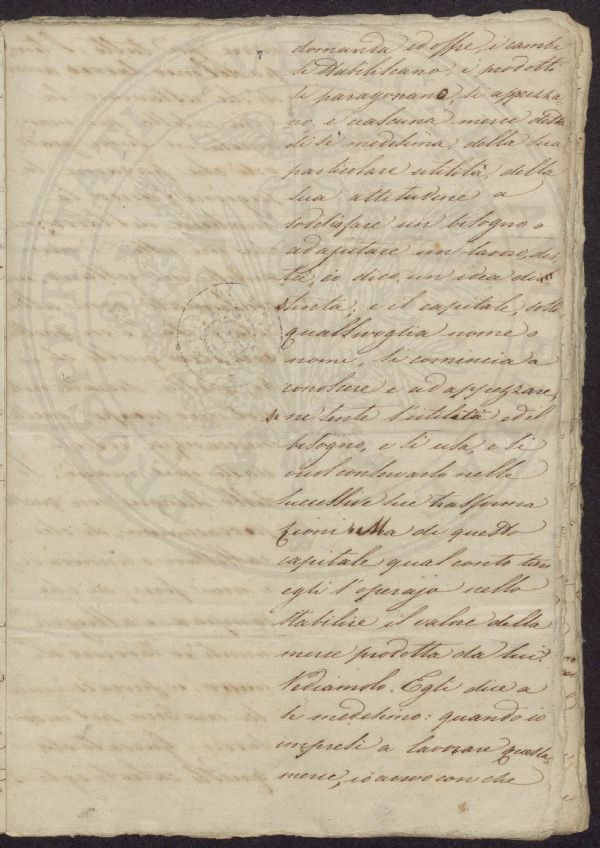 domanda ed offre, i cambi
si stabiliscano, i prodotti
si paragonano, si apprezza-
no, e ciascuna merce desta
di sè medesima, della sua
particolare utilità, della
sua attitudine a
soddisfare un bisogno o
ad ajutare un lavoro, des-
ta, io dico, un idea dis-
tinta; e il capitale, sotto
qualsivoglia nome o
nomi, si comincia a
conoscere e ad apprezzare,
se ne sente l'utilità ed il
bisogno, e si usa, e si
vuol conservarlo nelle
successive sue trasforma
zioni. Ma di questo
capitale qual conto tien
egli l'operajo nello
stabilire il valore della
merce prodotta da lui?
Vediamolo. Egli dice a
se medesimo: quando io
impresi a lavorare questa
merce, io aveva con che